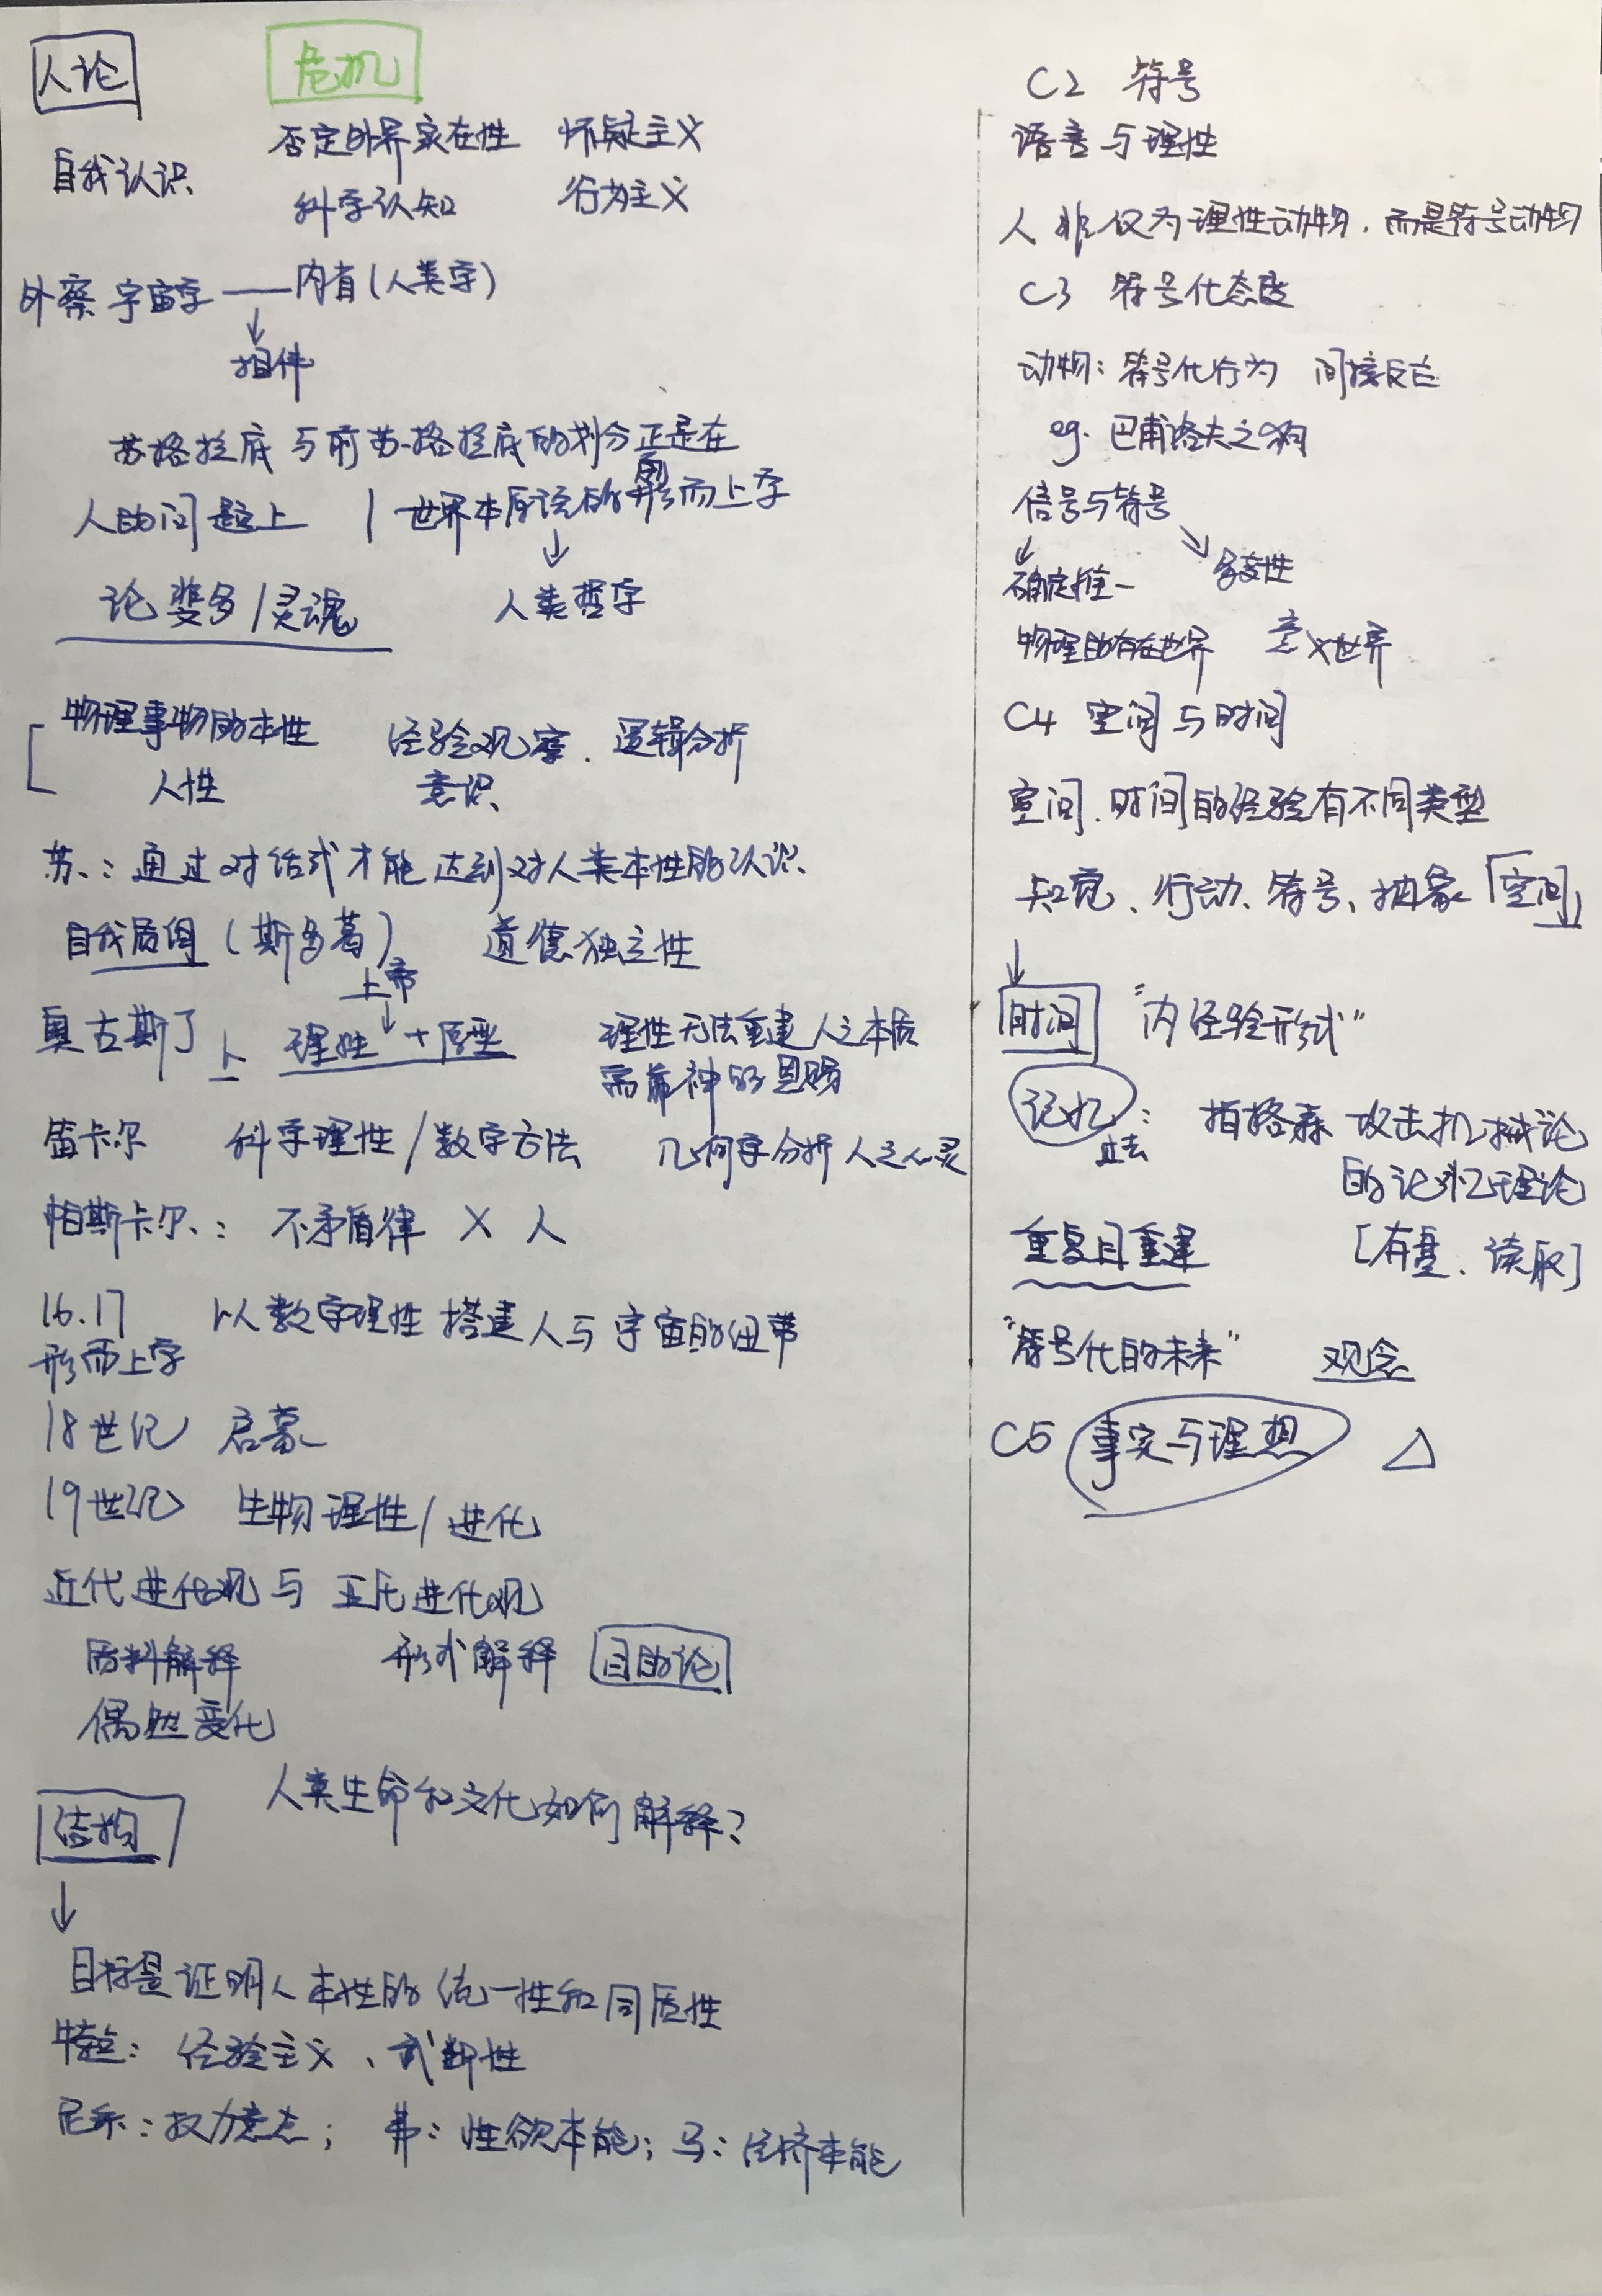 人论 危机
否定外界实在性 怀疑主义
自我认识 科学认知 行为主义
外察 宇宙学 —— 内省(人类学)
↓
组件
苏格拉底与前苏格拉底的划分正是在
人的问题上 | 世界本原说的 形而上学
↓
论斐多/灵魂 人类哲学
物理事物的本性 经验观察、逻辑分析
人性 意识
苏、：通过对话式才能达到对人类本性的认识、
自我质询(斯多葛) 道德独立性
上帝
↓
奥古斯丁 理性 + 原型 理性无法重建人之本质
而靠神的恩赐
笛卡尔 科学理性/数学方法 几何学分析人之心灵
帕斯卡尔、：不矛盾律 X 人
16.17 以数学理性搭建人与宇宙的纽带
形而上学
18世纪 启蒙
19世纪 生物理性/进化
近代进化观与亚氏进化观
质料解释 形式解释 目的论
偶然变化
人类生命和文化如何解释?
结构
↓
目标是证明人本性的统一性和同质性
特点：经验主义、武断性
尼采：权力意志；弗：性欲本能；马：经济本能
C2 符号
语言与理性
人非仅为理性动物，而是符号动物
C3 符号化态度
动物：符号化行为 间接反应
eg. 巴甫洛夫之狗
信号与符号
↙ ↘
确定唯一 多变性
物理的存在世界 意义世界
C4 空间与时间
空间、时间的经验有不同类型
知觉、行动、符号、抽象「空间」
↓
时间 "内经验形式"
记忆：柏格森 攻击机械论
过去 的记忆理论
重复且重建 [存量、读取]
"符号化的未来" 观念
C5 事实与理想 △